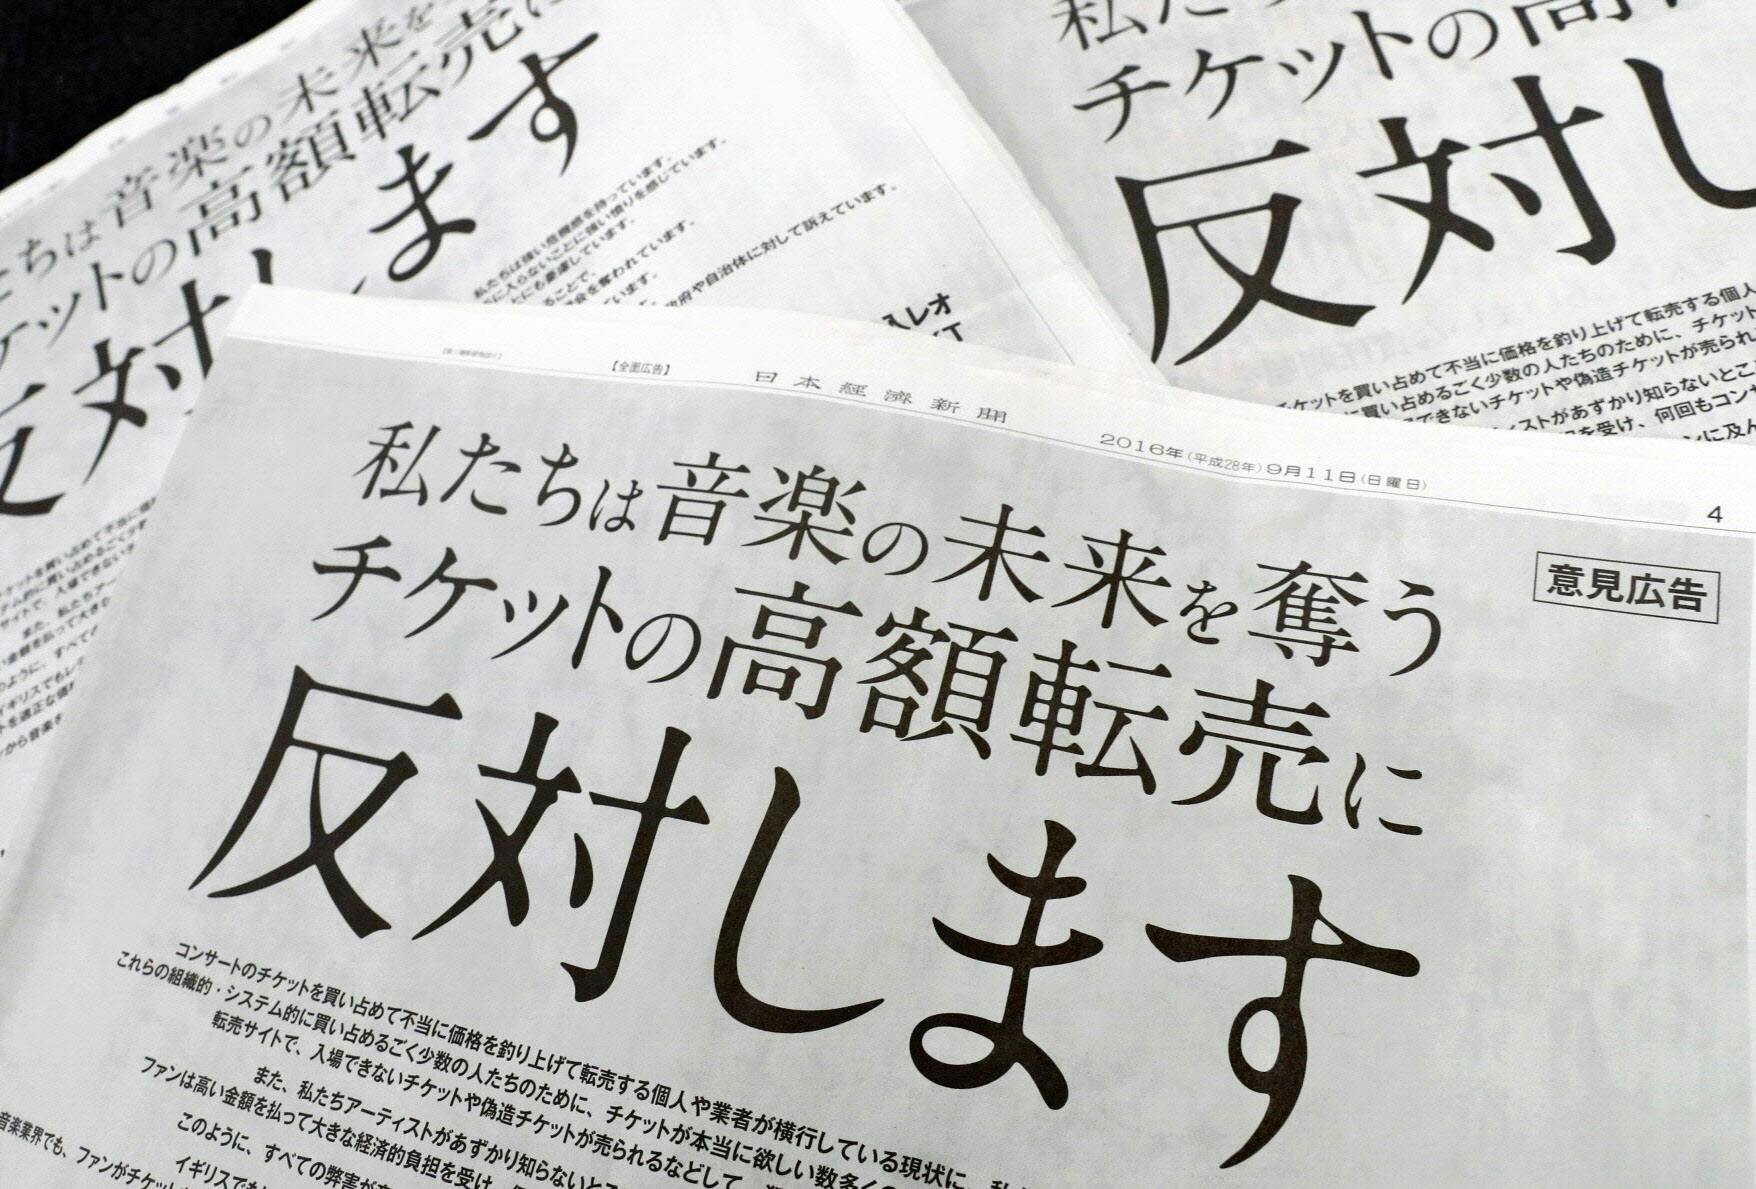 【全面広告】
日本経済新聞
2016年(平成28年)9月11日(日曜日)
4
意見広告
私たちは音楽の未来を奪う
チケットの高額転売に
反対します
コンサートのチケットを買い占めて不当に価格を釣り上げて転売する個人や業者が横行している現状に、
これらの組織的・システム的に買い占めるごく少数の人たちのために、チケットが本当に欲しい数多く
転売サイトで、入場できないチケットや偽造チケットが売られるなどして、
また、私たちアーティストがあずかり知らないと
ファンは高い金額を払って大きな経済的負担を受け、
このように、すべての弊害が
イギリスでも
音楽業界でも、ファンがチケット
ちは音楽の未来を
ケットの高額転売に
反対します
私たちは強い危機感を持っています。
に入らないことに強い憤りを感じています。
とにも憂慮しています。
ることで、
会を奪われています。
います。
政府や自治体に対して訴えています。
入レオ
チケットの高
反対し
チケットを買い占めて不当に価格を釣り上げて転売する個人
に買い占めるごく少数の人たちのために、チケット
できないチケットや偽造チケットが売られ
ィストがあずかり知らないとこ
を受け、何回もコン